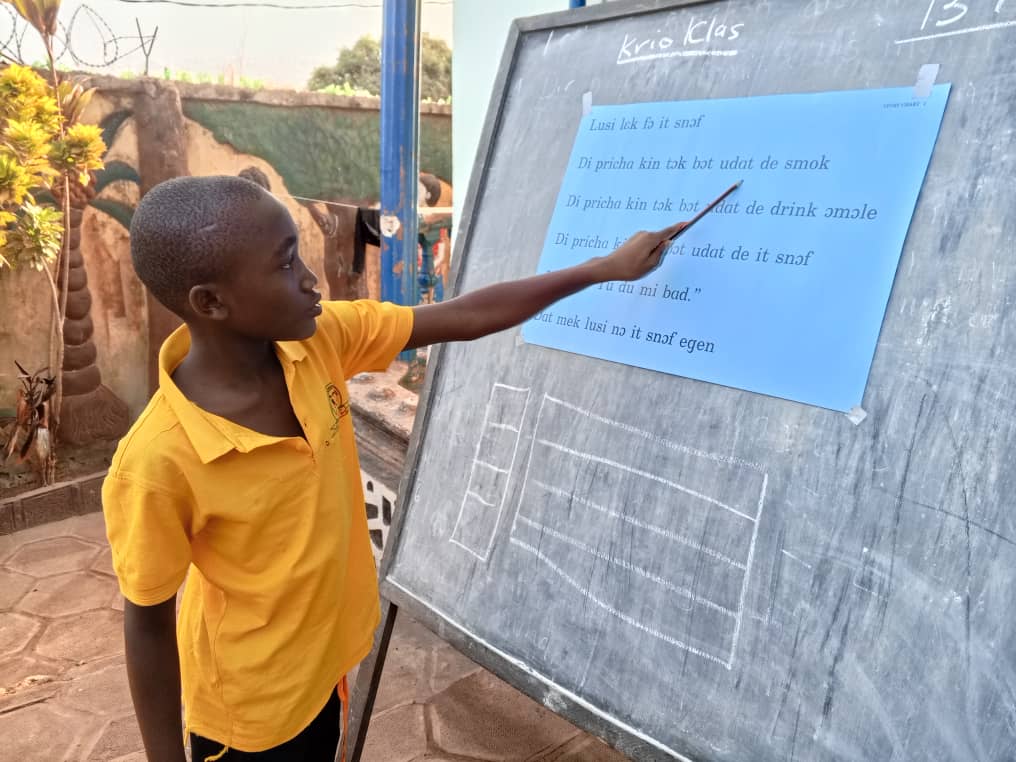 Krio Klas
13
STORY CHART 1
Lusi lɛk fɔ it snɔf
Di pricha kin tɔk bɔt udat de smok
Di pricha kin tɔk bɔt udat de drink ɔmɔle
Di pricha bɔt udat de it snɔf
du mi bad.”
Dat mek lusi nɔ it snɔf egen